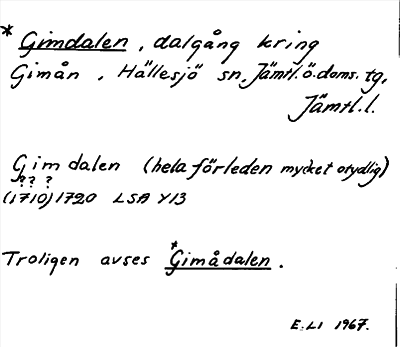 * Gimdalen, dalgång kring
Gimån, Hällesjö sn, Jämtl.ö.doms. tg,
Jämtl.l.
Gimdalen (hela förleden mycket otydlig)
? ? ?
(1710) 1720 LSA Y13
Troligen avses *Gimådalen.
E. LI 1967.